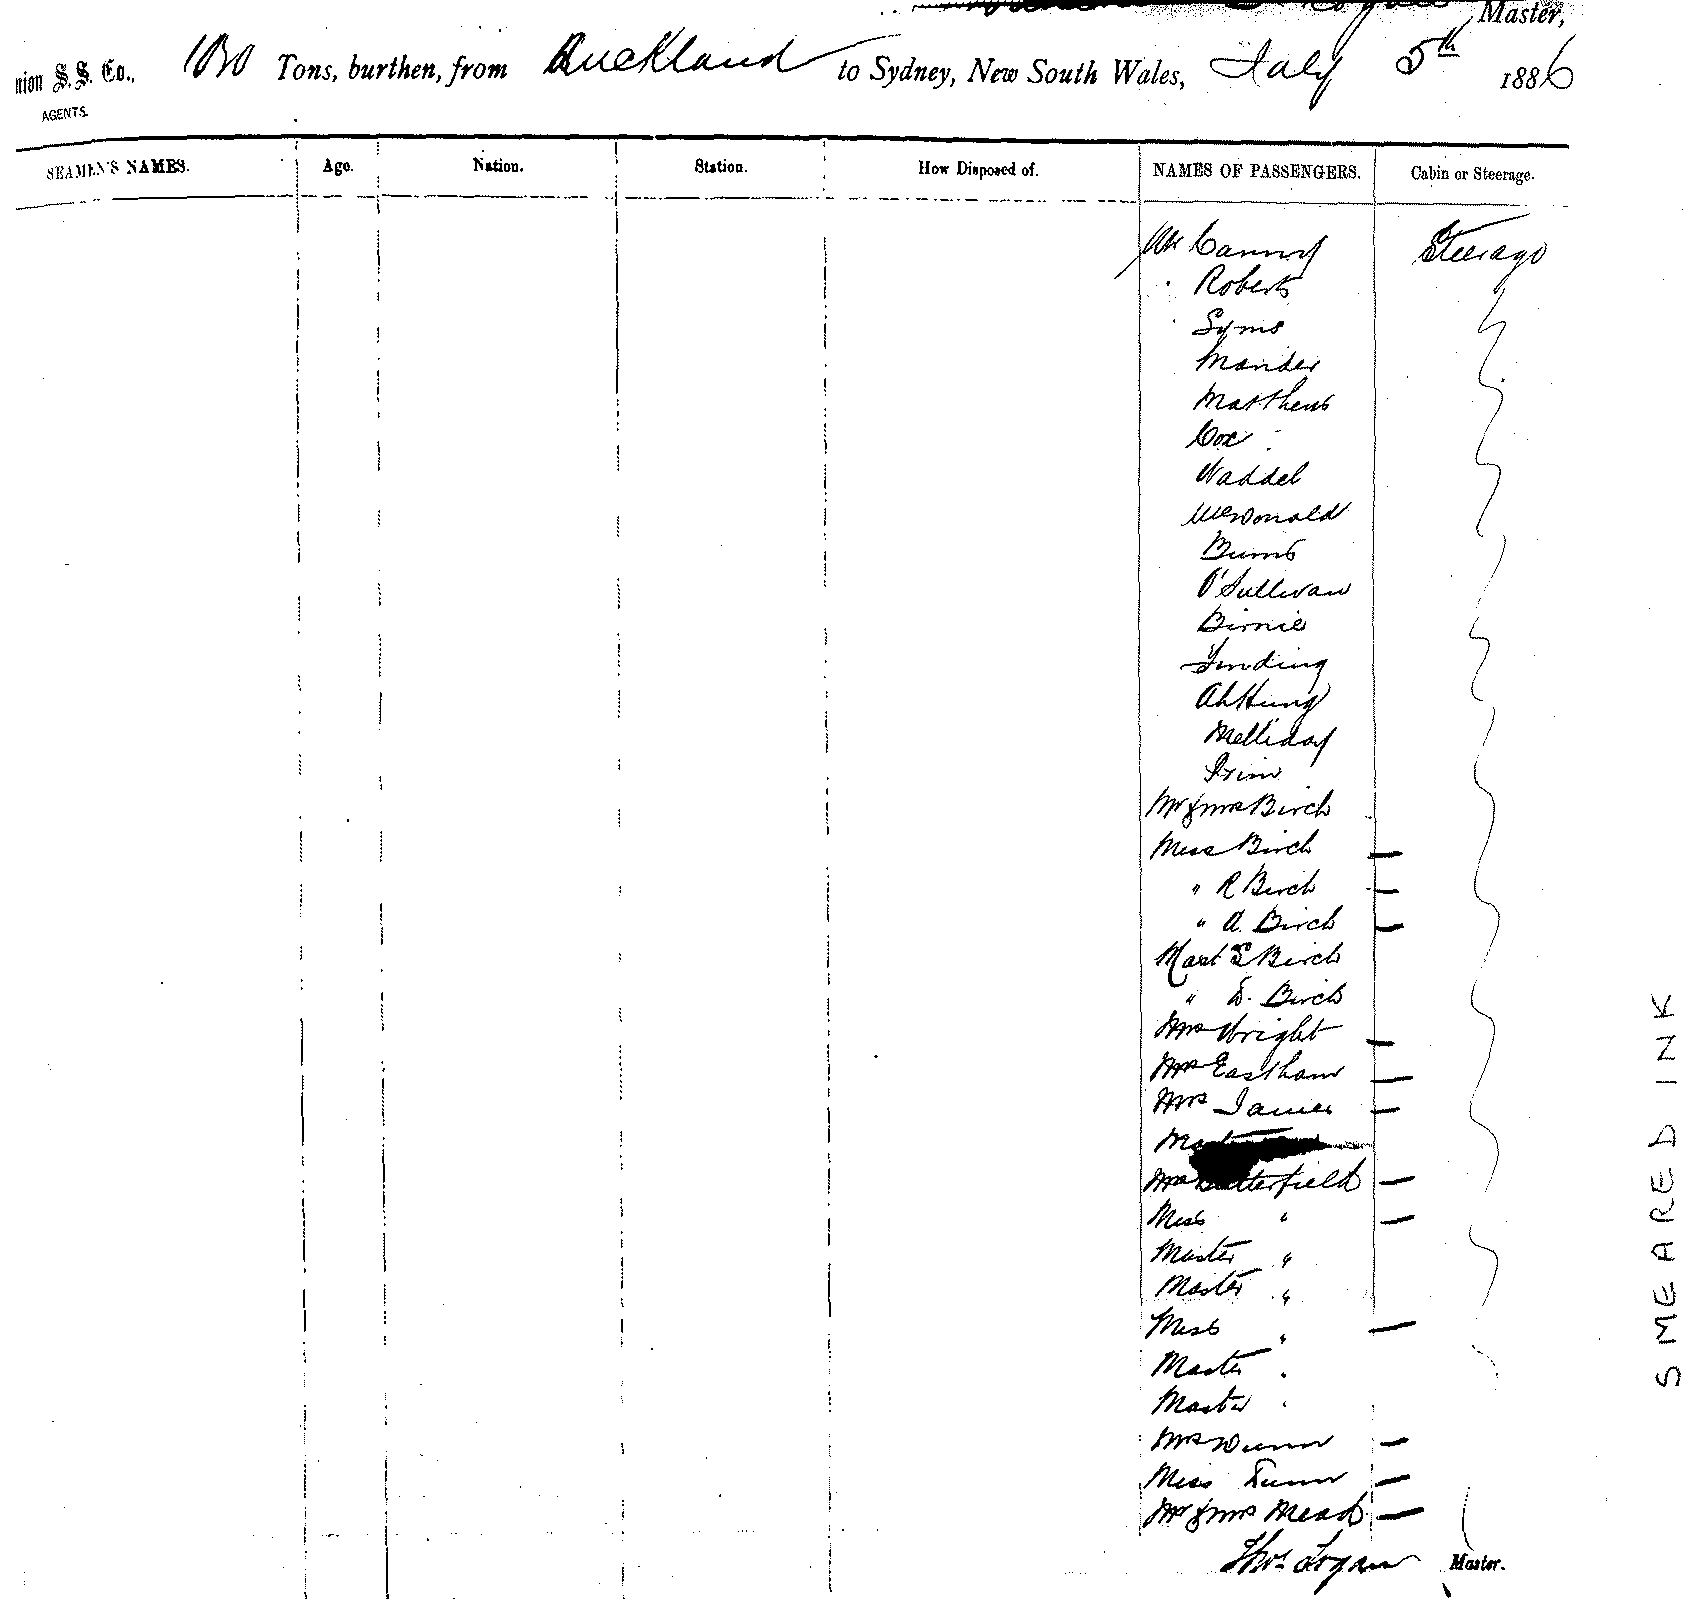 Master,
nion S.S. Co., Tons, burthen, from Auckland to Sydney, New South Wales, July 5th 1886
AGENTS.
SEAMEN'S NAMES. Age. Nation. Station. How Disposed of. NAMES OF PASSENGERS. Cabin or Steerage.
Mr Steerage
Roberts
Syms
Mander
Matthews
Cox
Waddel
McDonald
Burns
O'Sullivan
Birnie
Ah Hung
Mr & Mrs Birch
Miss Birch —
" R Birch —
" A. Birch —
Mast Birch
" Birch
Mrs Wright —
Eastham —
Mrs James —
field —
Miss " —
Master "
Master "
Miss " —
Master "
Master "
Mrs Dunn —
Miss Dunn —
Mr & Mrs Mead —
Thos. Logan Master.
SMEARED INK